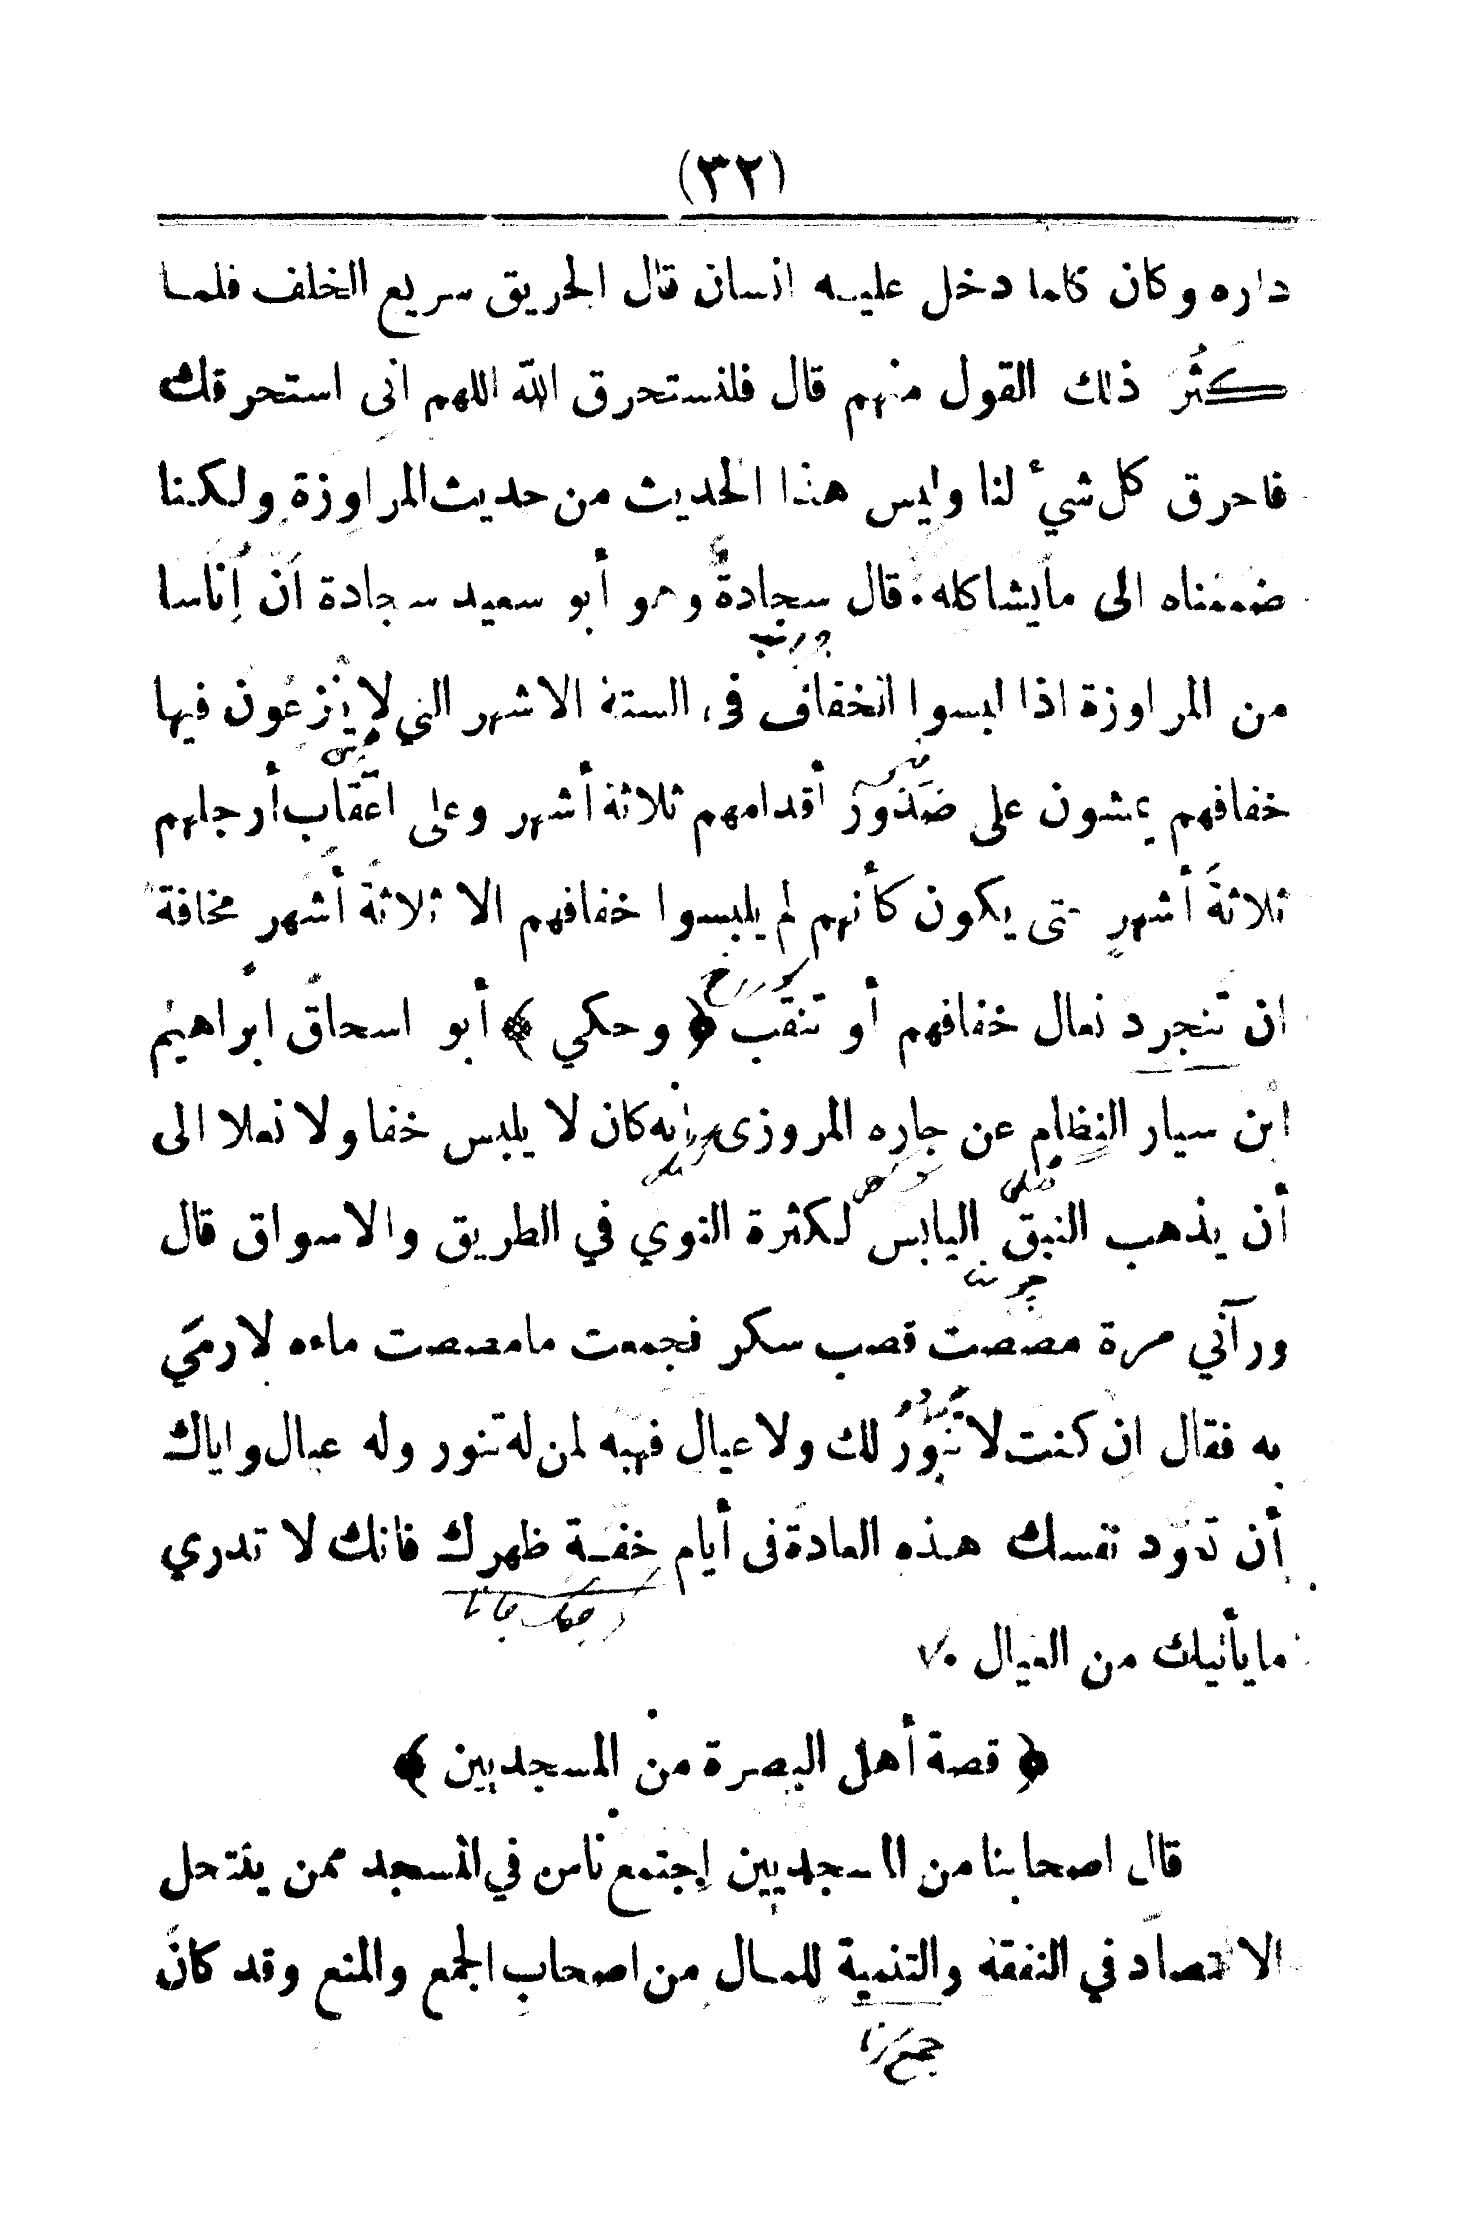 (٣٢)
داره وكان كلما دخل عليه انسان قال الحريق سريع الخلف فلما
كثر ذلك القول منهم قال فلنستحرق الله اللهم انى استحرقك
فاحرق كل شيء لنا وليس هذا الحديث من حديث المراوزة ولكنا
ضممناه الى مايشاكله. قال سجادة وهو أبو سعيد سجادة ان اناسا
من المراوزة اذا لبسوا الخفاف فى الستة الاشهر التي لا ينزعون فيها
خفافهم يمشون على صدور أقدامهم ثلاثة أشهر وعلى اعقاب أرجلهم
ثلاثة أشهر حتى يكون كأنهم لم يلبسوا خفافهم الا ثلاثة أشهر مخافة
ان تنجرد نعال خفافهم أو تنقب ﴿ وحكي ﴾ أبو اسحاق ابراهيم
ابن سيار النظام عن جاره المروزى انه كان لا يلبس خفا ولا نعلا الى
أن يذهب النبق اليابس لكثرة النوي في الطريق والاسواق قال
ورآني مرة مصصت قصب سكر فجمعت مامصصت ماءه لارمي
به فقال ان كنت لا تنور لك ولا عيال فهبه لمن له تنور وله عيال واياك
أن تعود نفسك هذه العادة فى أيام خفة ظهرك فانك لا تدري
مايأتيك من العيال
﴿ قصة أهل البصرة من المسجديين ﴾
قال اصحابنا من المسجديين إجتمع ناس في المسجد ممن ينتحل
الاقتصاد في النفقة والتنمية للمال من اصحاب الجمع والمنع وقد كان